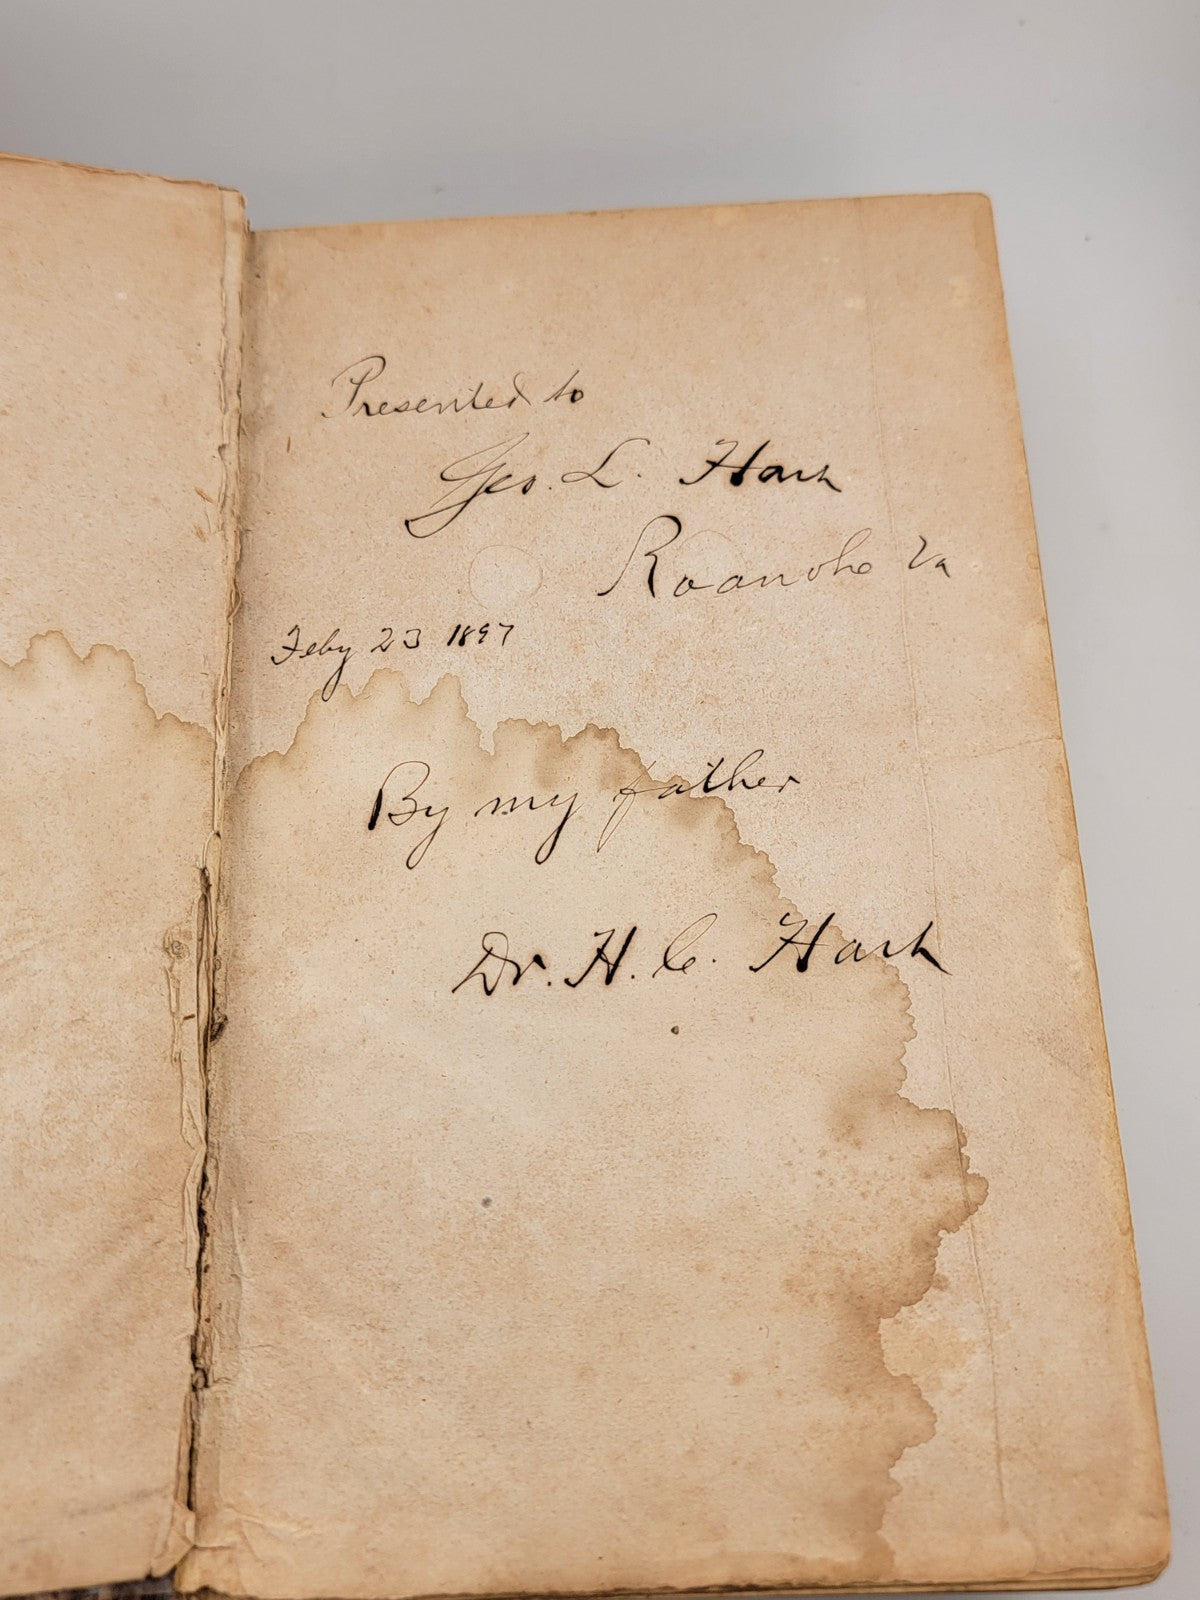 Presented to
Geo. L. Hart
Roanoke Va
Feby 23 1897
By my father
Dr. H. C. Hart